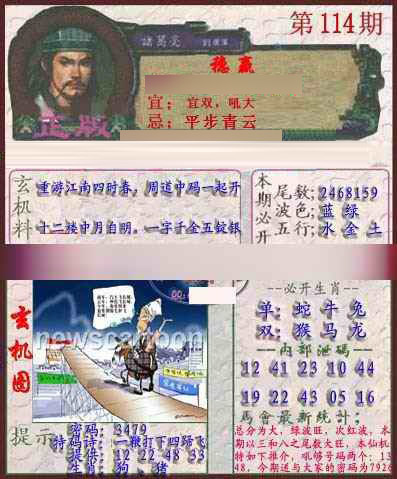 第114期
諸葛亮
稳赢
宜：宜双，吼大
忌：平步青云
正版
玄机料
重游江南四时春，周道中码一起开
十二楼中月自明，一字千金五锭银
本期必开
尾数：2468159
波色：蓝 绿
五行：水 金 土
玄机图
newscartoon
--必开生肖--
单：蛇 牛 兔
双：猴 马 龙
--内部泄码--
12 41 23 10 44
19 22 43 05 16
马會最新統計；
总分为大，绿波旺，次红波，本
期以三和八之尾数大旺，本仙机
特如下推介，吼够号码两个：13
48，今期送与大家的密码为7926
提示
密码：3479
特码诗：一鞭打下四蹄飞
提供：12 22 48 33
生肖：狗、猪